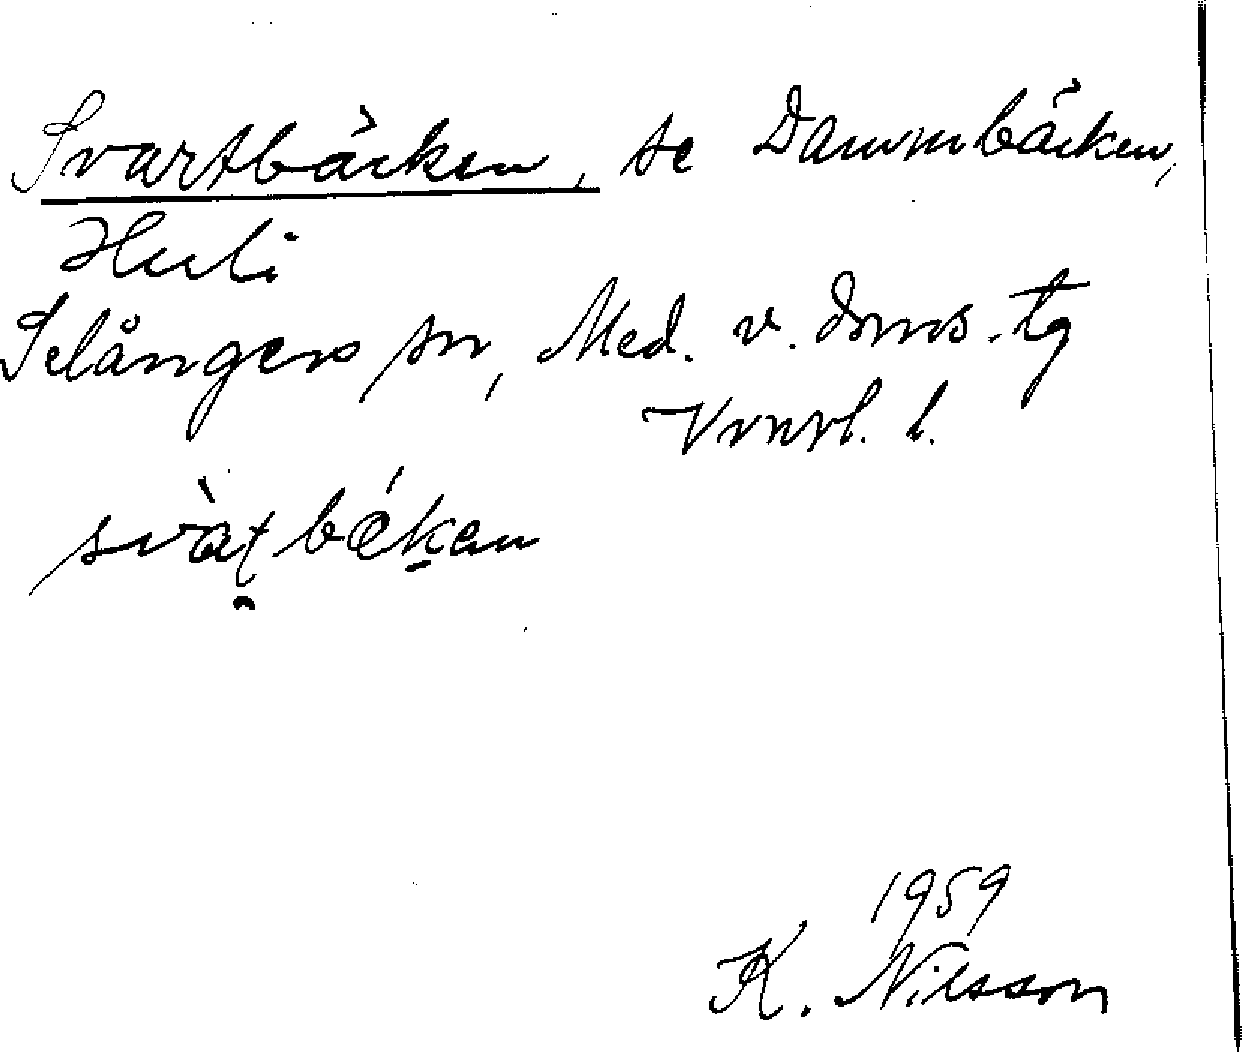 Svartbäcken, se Dammbäcken,
Huli
Selångers sn, Med. v. doms. tg
Vrnrl. l.
svàţbékan
1959
K. Nilsson